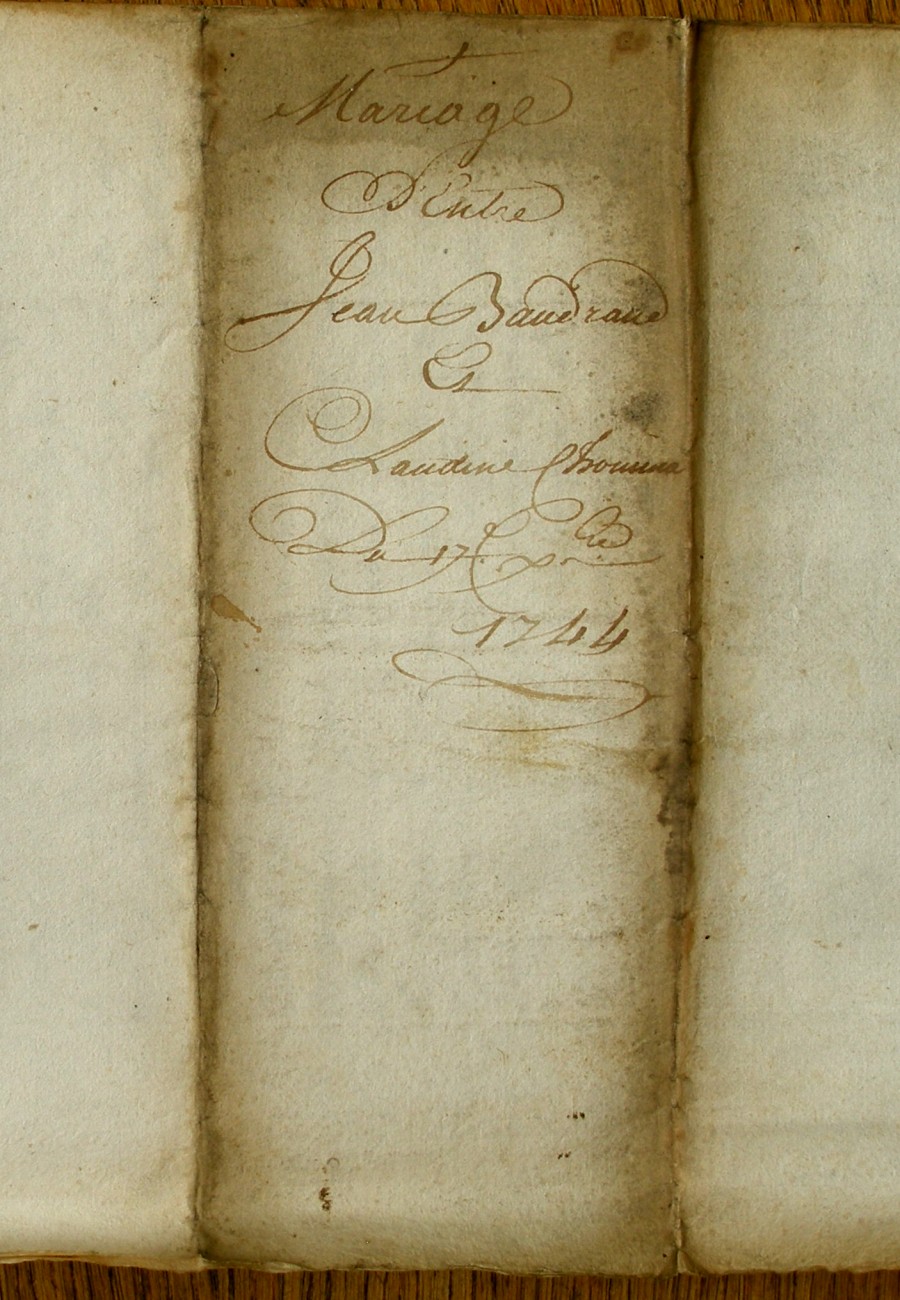 Mariage
D'Entre
Jean Baudrand
Et
Claudine
Du 17e xbre
1744